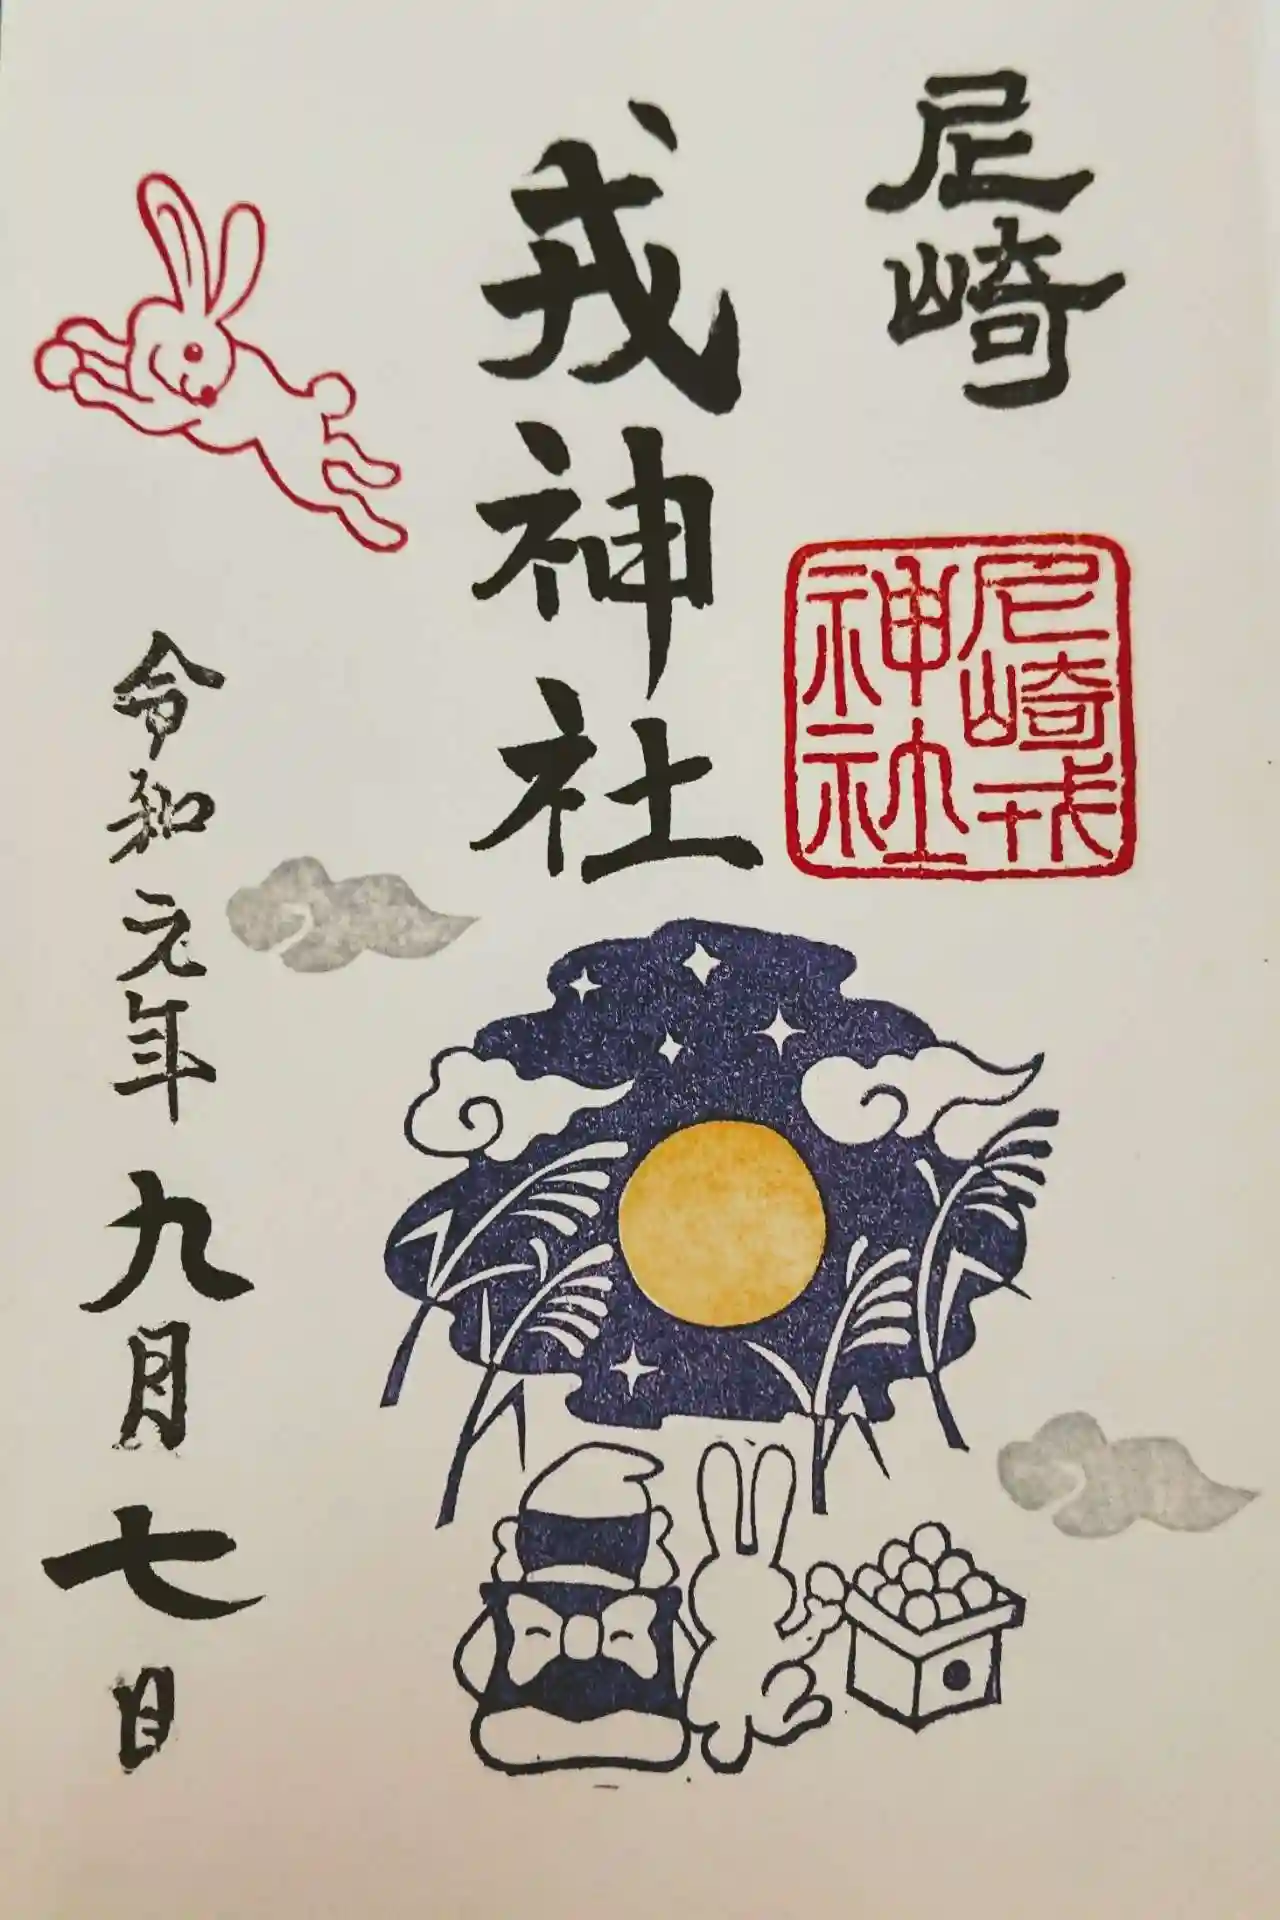 尼崎
尼崎戎
神社
戎神社
令和元年九月七日